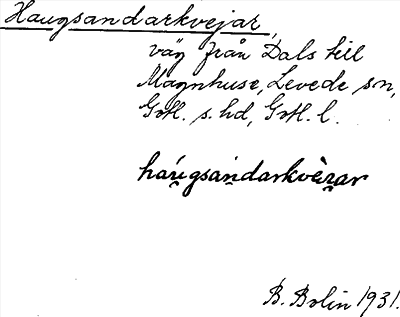 Haugsandarkvejar,
väg från Dals till
Magnhuse, Levede sn,
Gotl. s. hd, Gotl. l.
háu̯gsandarkvèʒar
B. Bolin 1931.